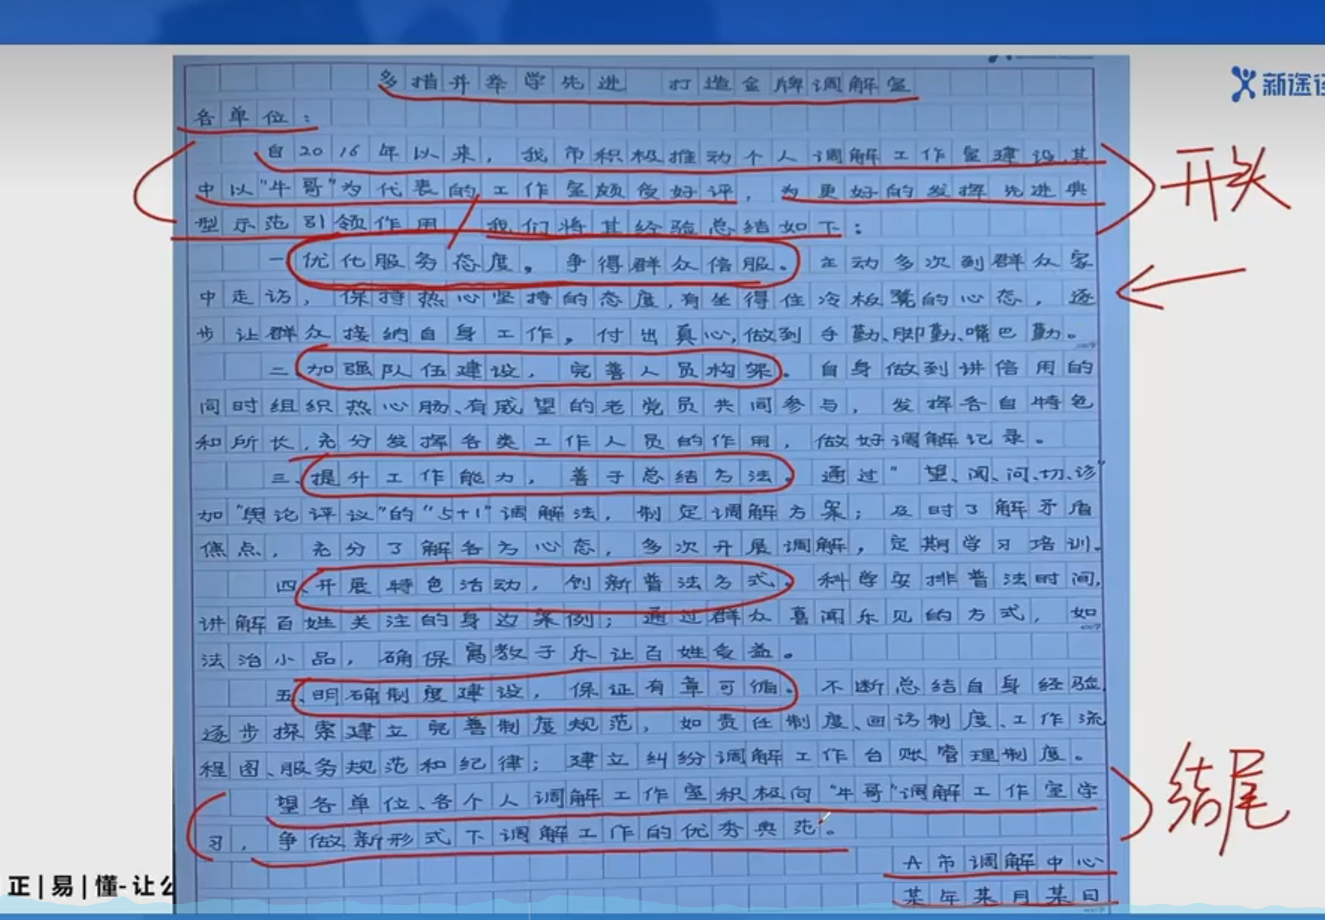 多措并举学先进 打造金牌调解室
新途径
各单位：
自2016年以来，我市积极推动个人调解工作室建设其
开头
中以"牛哥"为代表的工作室颇受好评，为更好的发挥先进典
型示范引领作用，我们将其经验总结如下：
一、优化服务态度，争得群众信服。主动多次到群众家
中走访，保持热心坚持的态度，有坐得住冷板凳的心态，逐
步让群众接纳自身工作，付出真心，做到手勤、脚勤、嘴巴勤。
二、加强队伍建设，完善人员构架。自身做到讲信用的
同时组织热心肠、有威望的老党员共同参与，发挥各自特色
和所长，充分发挥各类工作人员的作用，做好调解记录。
三、提升工作能力，善于总结方法。通过"望、闻、问、切、诊"
加"舆论评议"的"5+1"调解法，制定调解方案；及时了解矛盾
焦点，充分了解各方心态，多次开展调解，定期学习培训。
四、开展特色活动，创新普法方式。科学安排普法时间，
讲解百姓关注的身边案例；通过群众喜闻乐见的方式，如
法治小品，确保寓教于乐让百姓受益。
五、明确制度建设，保证有章可循。不断总结自身经验，
逐步探索建立完善制度规范，如责任制度、回访制度、工作流
程图、服务规范和纪律；建立纠纷调解工作台账管理制度。
望各单位、各个人调解工作室积极向"牛哥"调解工作室学
结尾
习，争做新形式下调解工作的优秀典范。
A市调解中心
正|易|懂-让公
某年某月某日